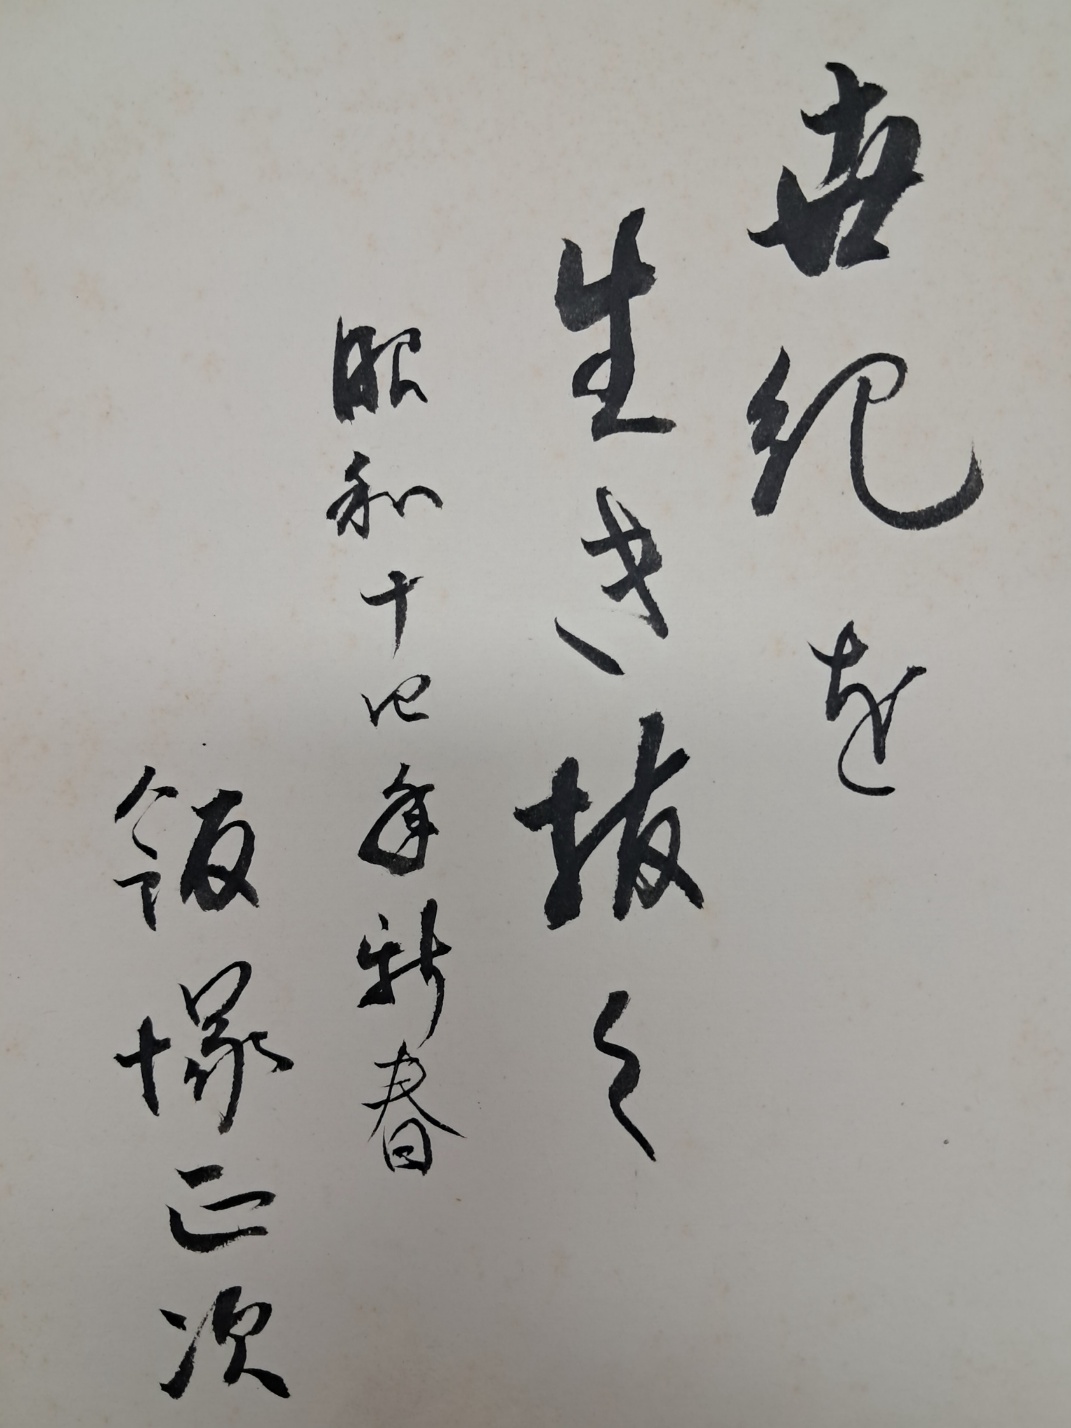 世紀を
生き抜く
昭和十四年新春
飯塚正次